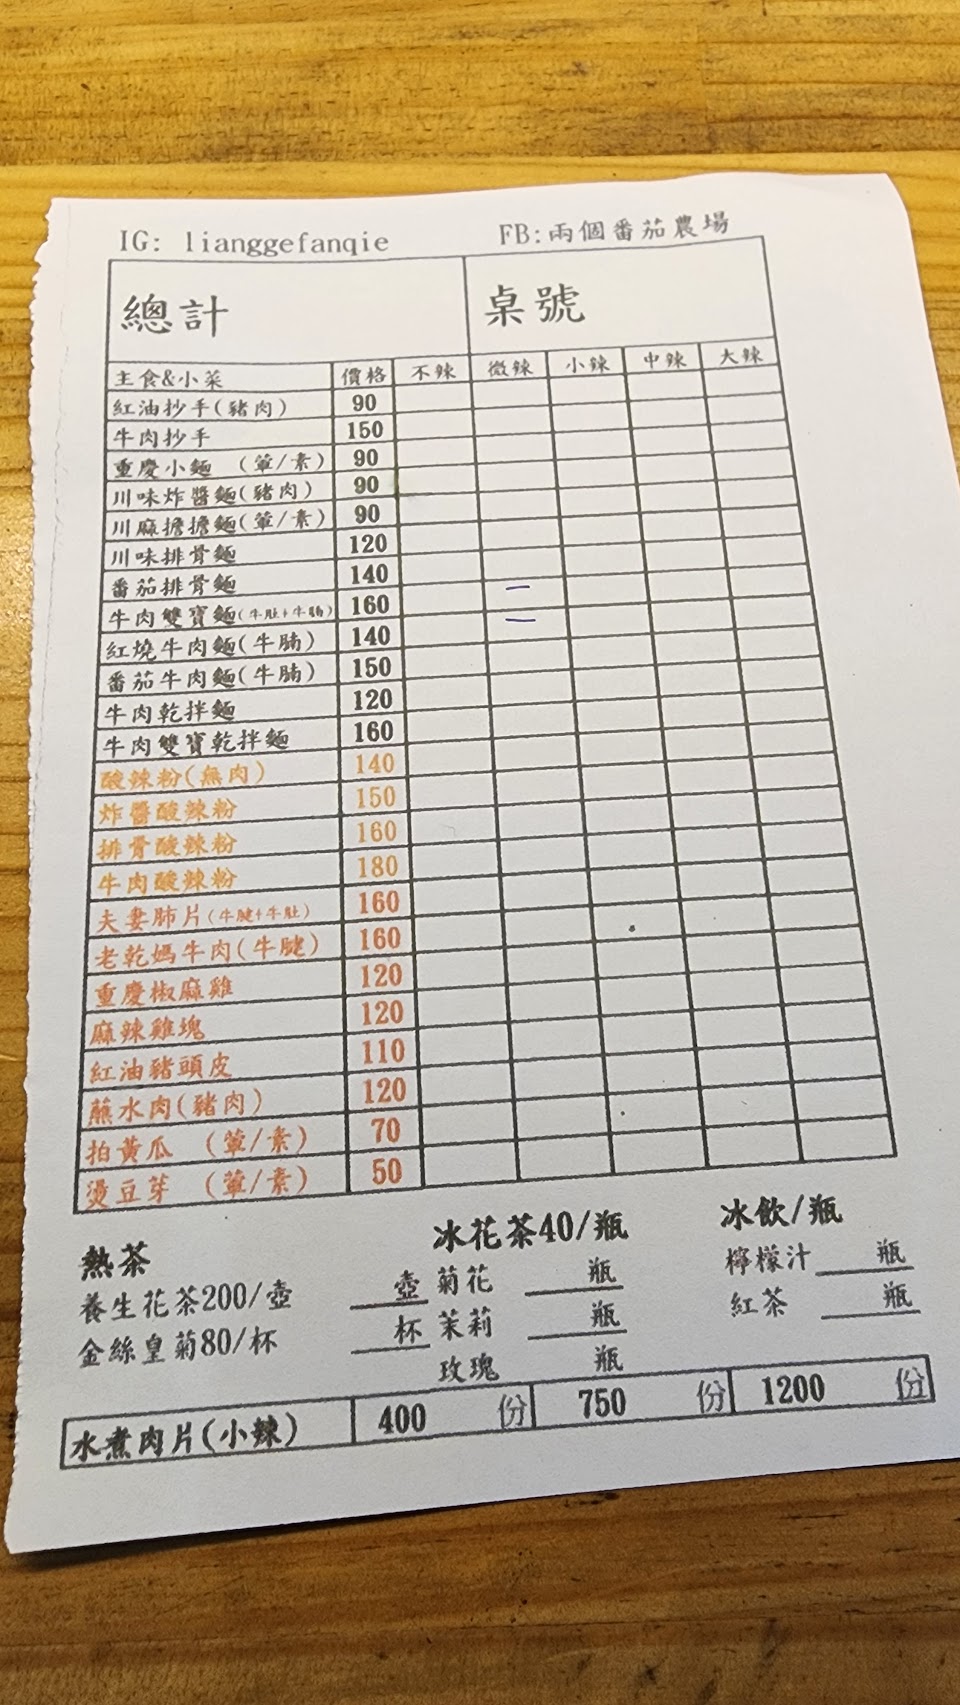 IG: lianggefanqie FB:兩個番茄農場
總計 桌號
主食&小菜 價格 不辣 微辣 小辣 中辣 大辣
紅油抄手(豬肉) 90
牛肉抄手 150
重慶小麵 (葷/素) 90
川味炸醬麵(豬肉) 90
川麻擔擔麵(葷/素) 90
川味排骨麵 120
番茄排骨麵 140 一
牛肉雙寶麵(牛肚+牛腩) 160 一
紅燒牛肉麵(牛腩) 140
番茄牛肉麵(牛腩) 150
牛肉乾拌麵 120
牛肉雙寶乾拌麵 160
酸辣粉(無肉) 140
炸醬酸辣粉 150
排骨酸辣粉 160
牛肉酸辣粉 180
夫妻肺片(牛腱+牛肚) 160
老乾媽牛肉(牛腱) 160
重慶椒麻雞 120
麻辣雞塊 120
紅油豬頭皮 110
蘸水肉(豬肉) 120
拍黃瓜 (葷/素) 70
燙豆芽 (葷/素) 50
熱茶 冰花茶40/瓶 冰飲/瓶
養生花茶200/壺 壺 菊花 瓶 檸檬汁 瓶
金絲皇菊80/杯 杯 茉莉 瓶 紅茶 瓶
玫瑰 瓶
水煮肉片(小辣) 400 份 750 份 1200 份